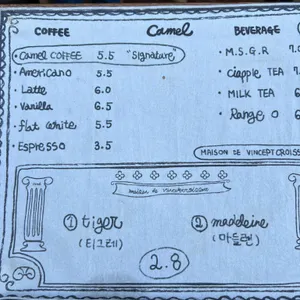 COFFEE
Camel
BEVERAGE
• Camel COFFEE 5.5 "Signature"
• Americano 5.5
• Latte 6.0
• Vanilla 6.5
• flat white 5.5
• Espresso 3.5
• M.S.G.R 7.
• ciapple TEA 7.
• MILK TEA 6
• Range O 6
MAISON DE VINCEPT CROISS
① tiger
(티그레)
② madeleine
(마들렌)
2.8